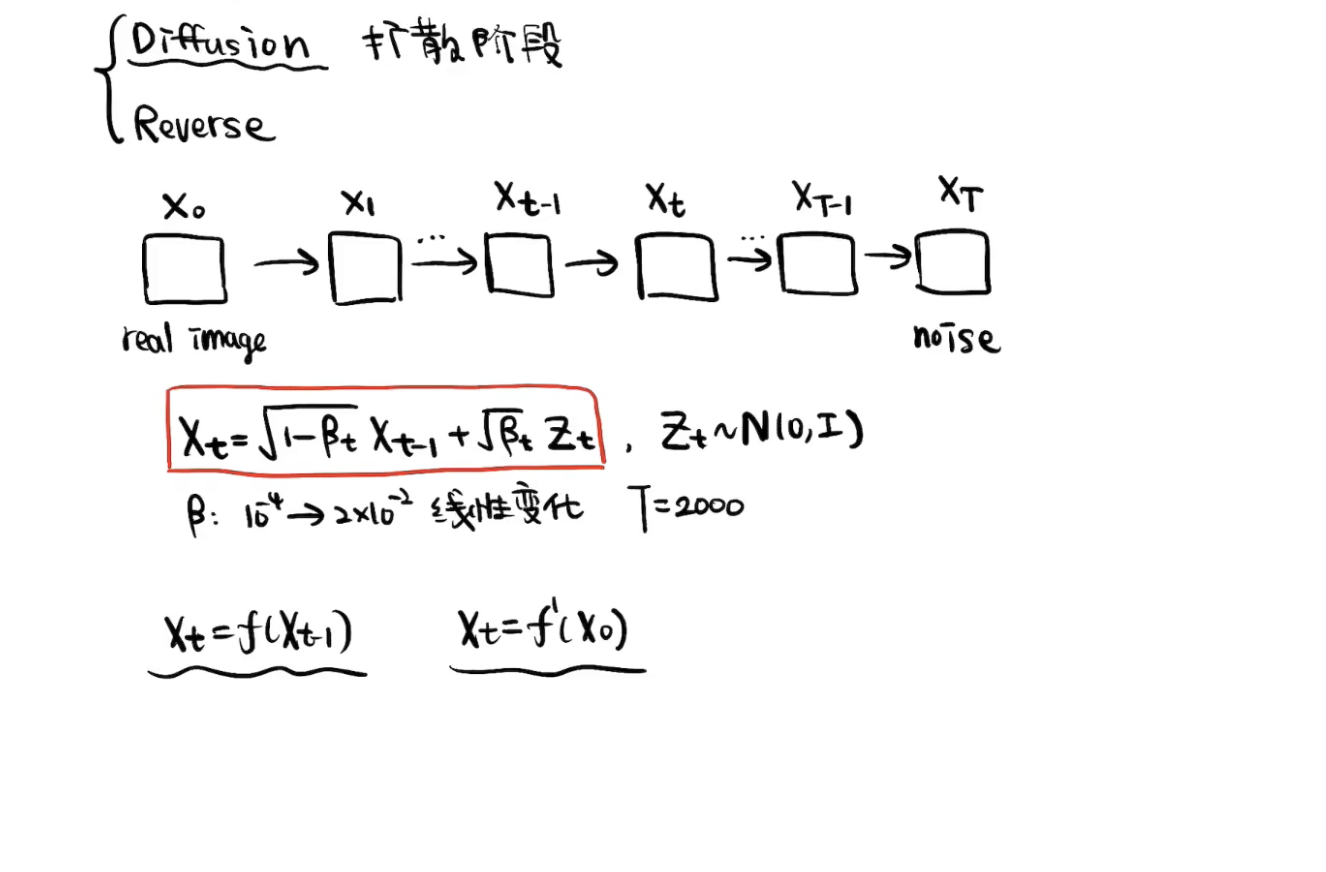 Diffusion 扩散阶段
Reverse
X₀ X₁ Xt-1 Xt XT-1 XT
... ...
real image noise
Xt=√(1-βt) Xt-1 + √βt Zt , Zt~N(0,I)
β: 10⁻⁴→2×10⁻² 线性变化 T=2000
Xt=f(Xt-1) Xt=f'(X₀)